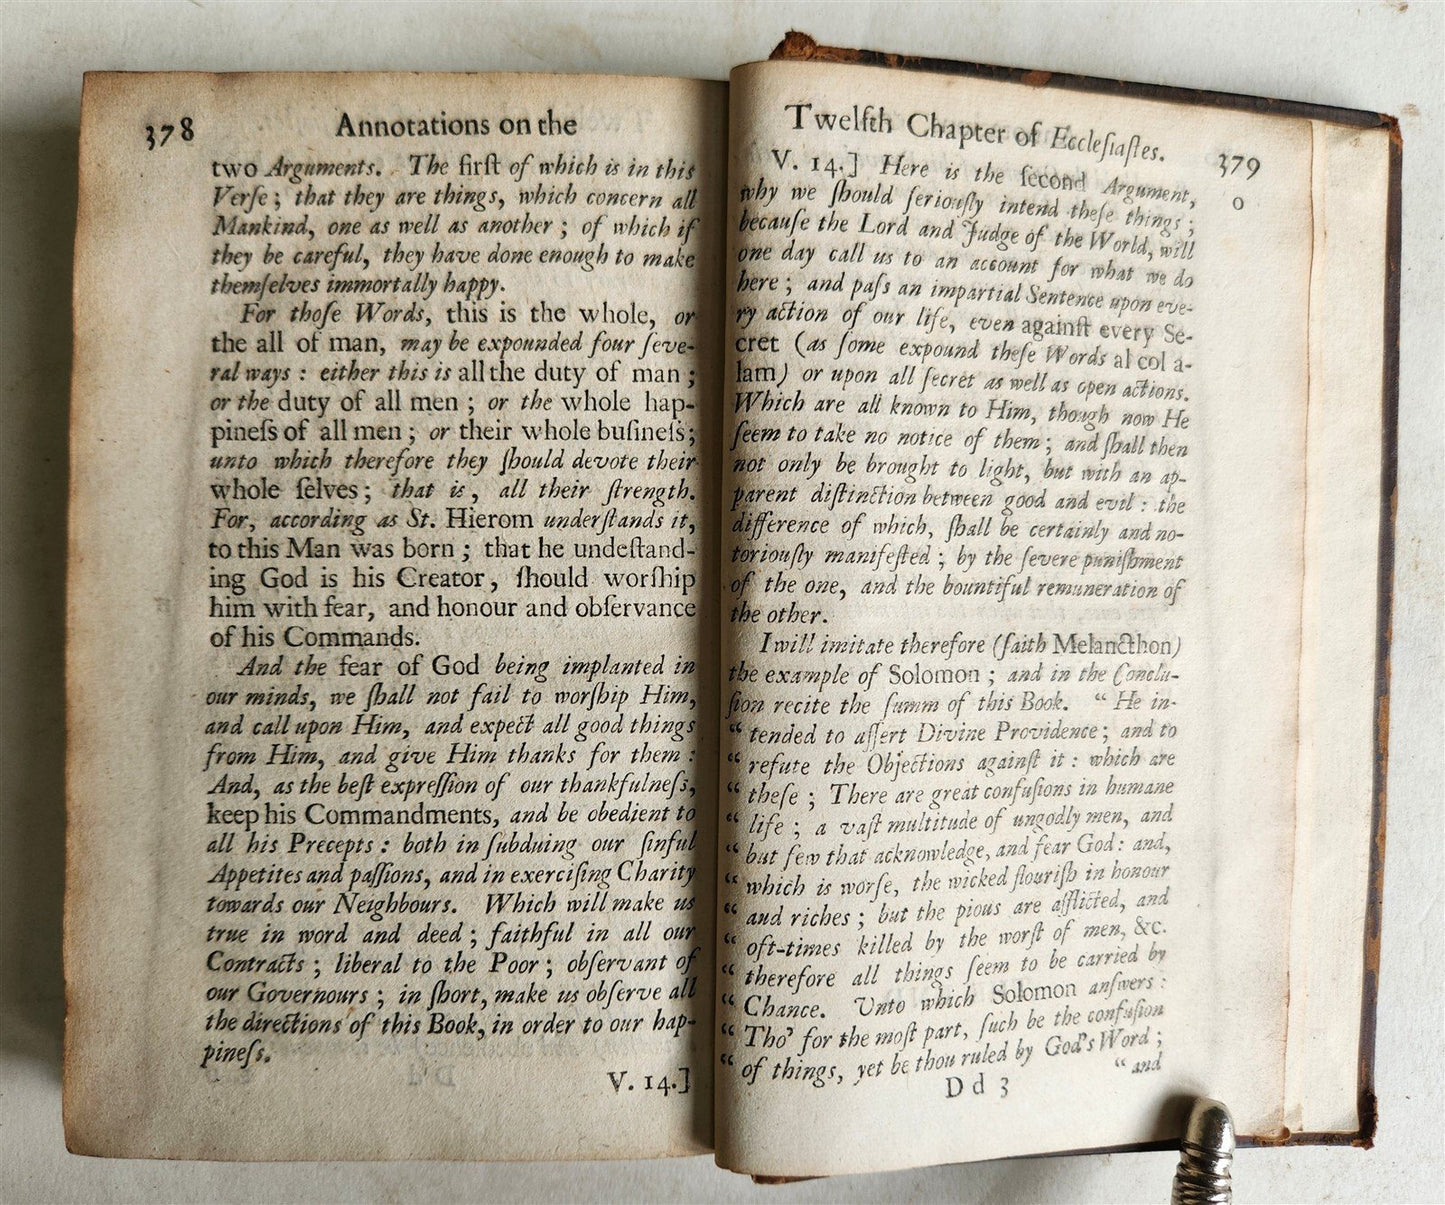 378
Annotations on the
two Arguments. The firſt of which is in this
Verſe; that they are things, which concern all
Mankind, one as well as another; of which if
they be careful, they have done enough to make
themſelves immortally happy.
For thoſe Words, this is the whole, or
the all of man, may be expounded four ſeve-
ral ways: either this is all the duty of man;
or the duty of all men; or the whole hap-
pineſs of all men; or their whole buſineſs;
unto which therefore they ſhould devote their
whole ſelves; that is, all their ſtrength.
For, according as St. Hierom underſtands it,
to this Man was born; that he undeſtand-
ing God is his Creator, ſhould worſhip
him with fear, and honour and obſervance
of his Commands.
And the fear of God being implanted in
our minds, we ſhall not fail to worſhip Him,
and call upon Him, and expect all good things
from Him, and give Him thanks for them:
And, as the beſt expreſſion of our thankfulneſs,
keep his Commandments, and be obedient to
all his Precepts: both in ſubduing our ſinful
Appetites and paſſions, and in exerciſing Charity
towards our Neighbours. Which will make us
true in word and deed; faithful in all our
Contracts; liberal to the Poor; obſervant of
our Governours; in ſhort, make us obſerve all
the directions of this Book, in order to our hap-
pineſs.
V. 14.]
Twelfth Chapter of Eccleſiaſtes.
379
o
V. 14.] Here is the ſecond Argument,
why we ſhould ſeriouſly intend theſe things;
becauſe the Lord and Judge of the World, will
one day call us to an account for what we do
here; and paſs an impartial Sentence upon eve-
ry action of our life, even againſt every Se-
cret (as ſome expound theſe Words al col a-
lam) or upon all ſecret as well as open actions.
Which are all known to Him, though now He
ſeem to take no notice of them; and ſhall then
not only be brought to light, but with an ap-
parent diſtinction between good and evil: the
difference of which, ſhall be certainly and no-
toriouſly manifeſted; by the ſevere puniſhment
of the one, and the bountiful remuneration of
the other.
I will imitate therefore (ſaith Melancthon)
the example of Solomon; and in the Conclu-
ſion recite the ſumm of this Book. “ He in-
“ tended to aſſert Divine Providence; and to
“ refute the Objections againſt it: which are
“ theſe; There are great confuſions in humane
“ life; a vaſt multitude of ungodly men, and
“ but few that acknowledge, and fear God: and,
“ which is worſe, the wicked flouriſh in honour
“ and riches; but the pious are afflicted, and
“ oft-times killed by the worſt of men, &c.
“ therefore all things ſeem to be carried by
“ Chance. Unto which Solomon anſwers:
“ Tho’ for the moſt part, ſuch be the confuſion
“ of things, yet be thou ruled by God's Word;
D d 3
“ and